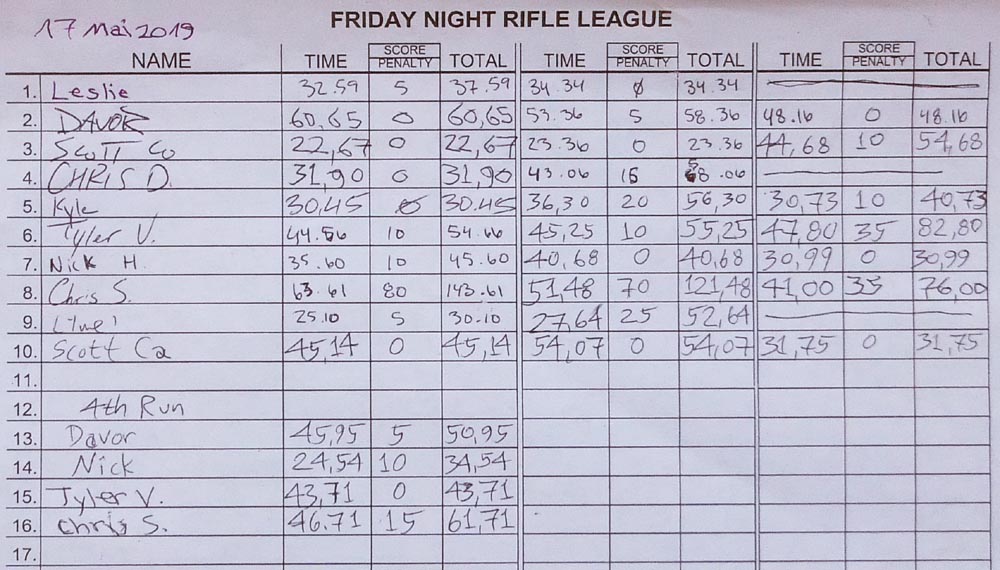 17 Mai 2019
FRIDAY NIGHT RIFLE LEAGUE
NAME TIME SCORE PENALTY TOTAL TIME SCORE PENALTY TOTAL TIME SCORE PENALTY TOTAL
1. Leslie 32.59 5 37.59 34.34 0 34.34
2. DAVOR 60,65 0 60,65 53.36 5 58.36 48.16 0 48.16
3. SCOTT CO 22,67 0 22,67 23.36 0 23.36 44,68 10 54,68
4. CHRIS D. 31,90 0 31,90 43.06 15 58.06
5. Kyle 30,45 0 30.45 36,30 20 56,30 30,73 10 40,73
6. Tyler V. 44.66 10 54.66 45,25 10 55,25 47,80 35 82,80
7. Nick H. 35.60 10 45.60 40,68 0 40,68 30,99 0 30,99
8. Chris S. 63.61 80 143.61 51,48 70 121,48 41,00 35 76,00
9. 25.10 5 30.10 27,64 25 52,64
10. Scott Ca 45,14 0 45,14 54,07 0 54,07 31,75 0 31,75
11.
12. 4th Run
13. Davor 45,95 5 50,95
14. Nick 24,54 10 34,54
15. Tyler V. 43,71 0 43,71
16. Chris S. 46.71 15 61,71
17.